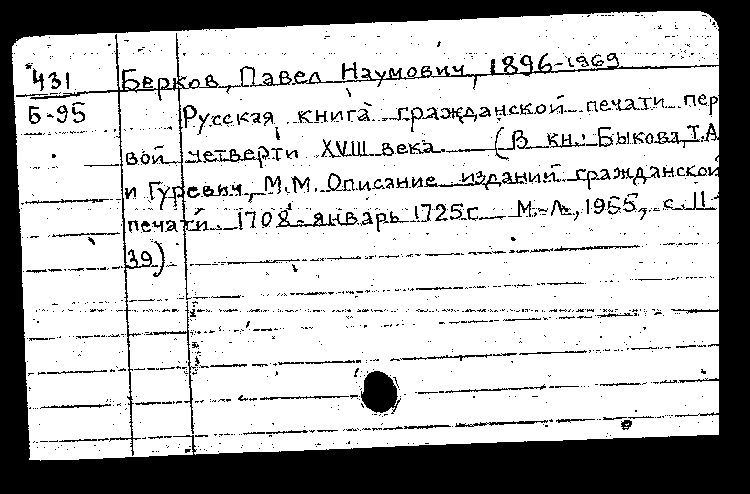 431 Берков, Павел Наумович, 1896-1969
Б-95 Русская книга гражданской печати пер
вой четверти XVIII века. (В кн.: Быкова, Т.А
и Гуревич, М.М. Описание изданий гражданской
печати. 1708 - январь 1725 г. М.-Л., 1955, с. 11-
39)